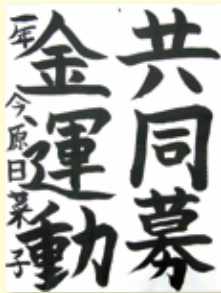 共同募
金運動
一年 今原日菜子